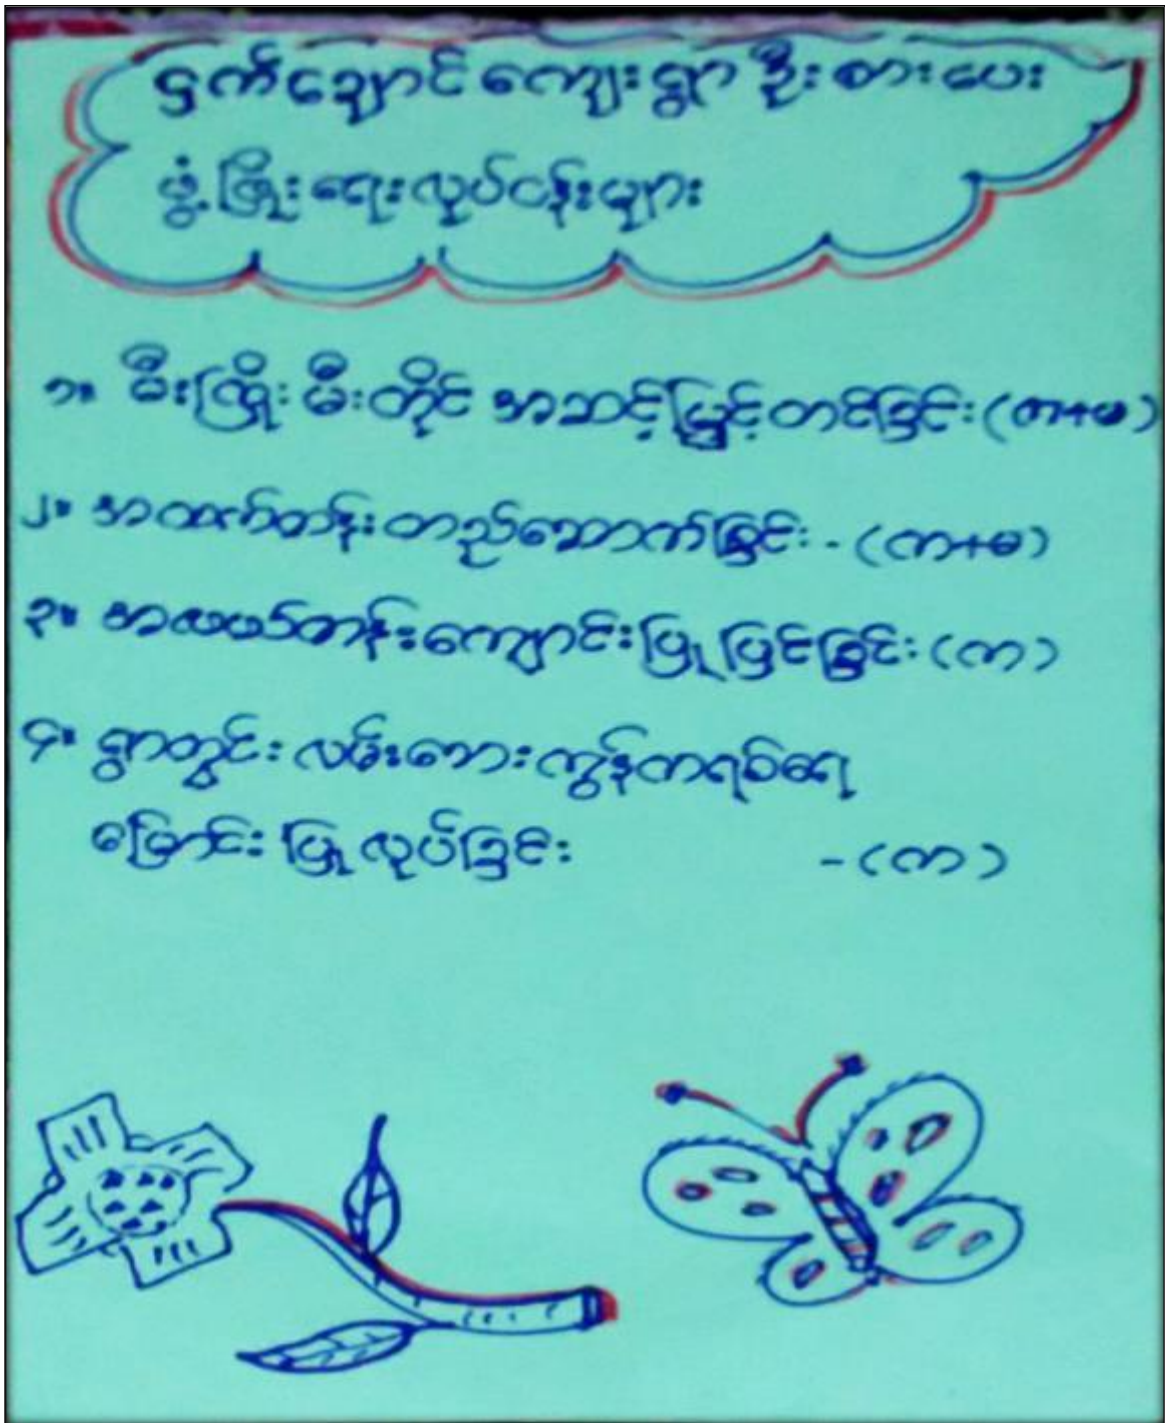 ငှက်ချောင်ကျေးရွာ ဦးစားပေး
ဖွံ့ဖြိုးရေးလုပ်ငန်းများ
၁။ မီးကြိုးမီးတိုင် အဆင့်မြှင့်တင်ခြင်း (က+မ)
၂။ အထက်တန်းတည်ဆောက်ခြင်း - (က+မ)
၃။ အလယ်တန်းကျောင်းပြုပြင်ခြင်း (က)
၄။ ရွာတွင်း လမ်းဘေးကွန်ကရစ်ရေ
မြောင်း ပြုလုပ်ခြင်း - (က)